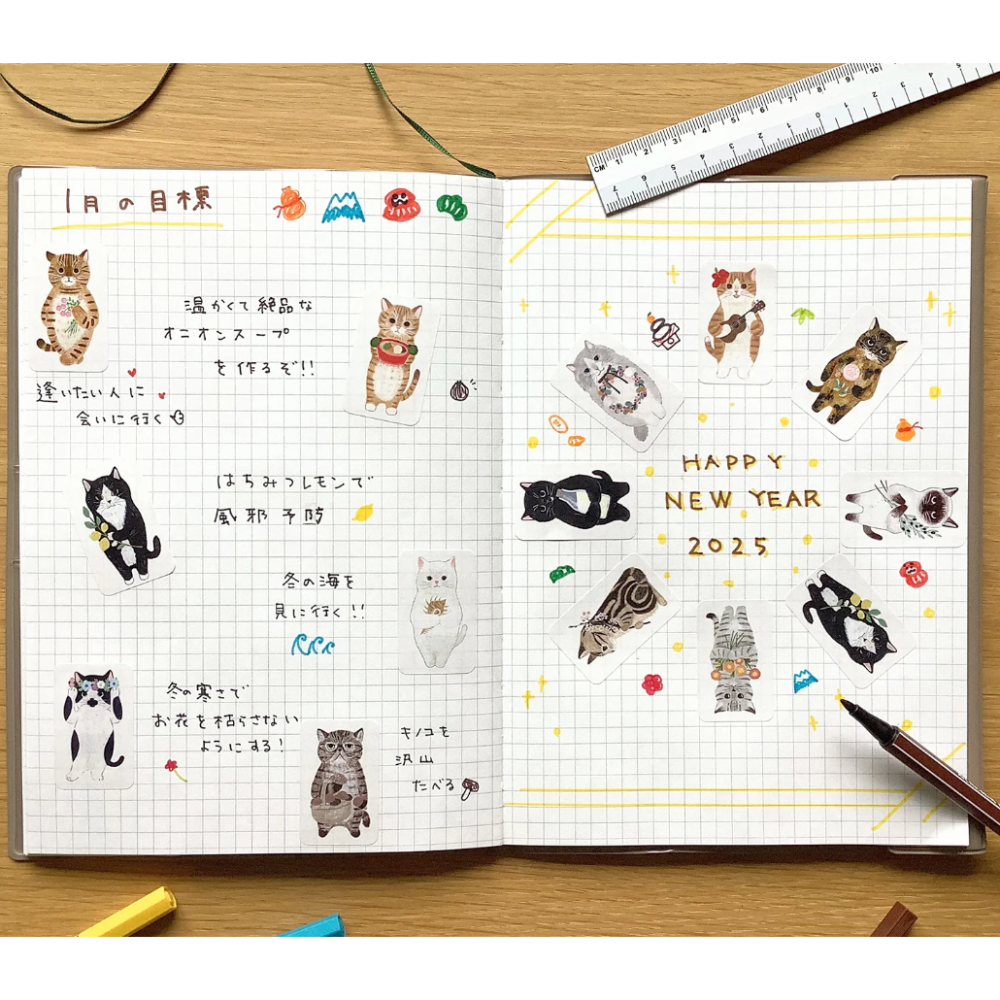 1月の目標
温かくて絶品な
オニオンスープ
を作るぞ!!
逢いたい人に
会いに行く
はちみつレモンで
風邪予防
冬の海を
見に行く!!
冬の寒さで
お花を枯らさない
ようにする!
キノコを
沢山
たべる
HAPPY
NEW YEAR
2025
CM 1 2 3 4 5 6 7 8 9 10
7 6 5 4 3 2 1 0 1 2 3 4 5